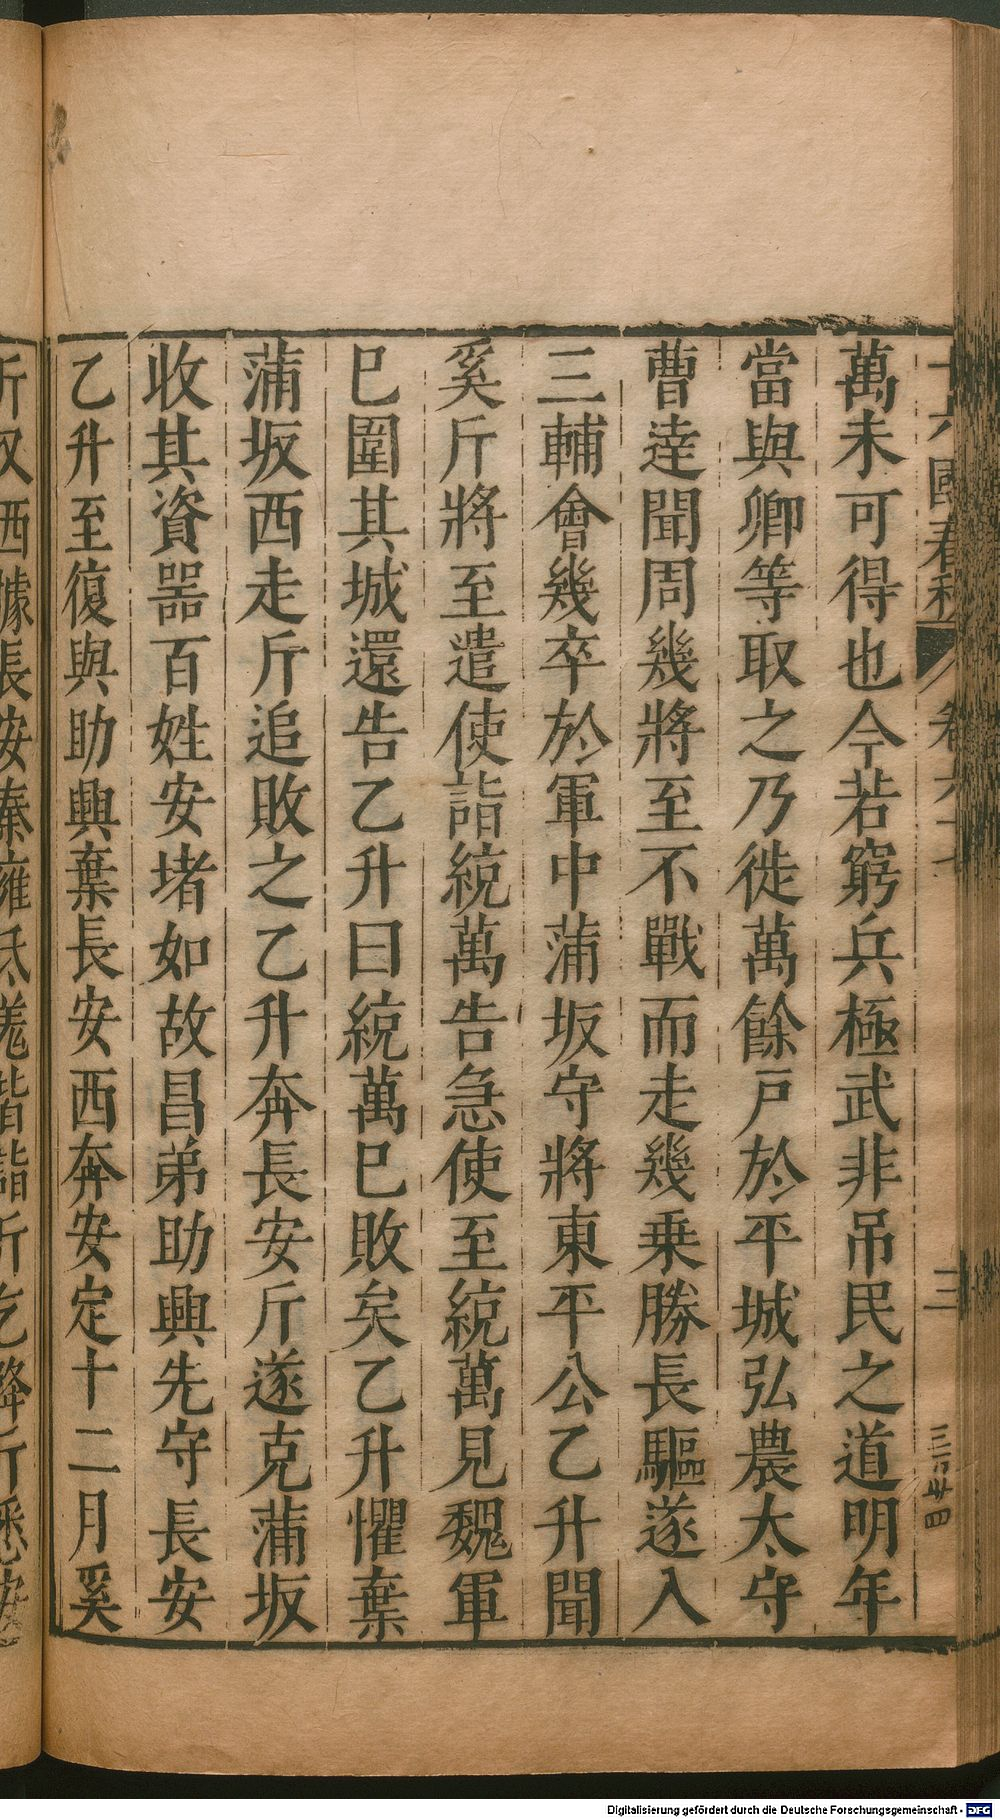 十六國春秋 卷六十七 三
萬未可得也今若窮兵極武非吊民之道明年
當與卿等取之乃徙萬餘戶於平城弘農太守
曹達聞周幾將至不戰而走幾乗勝長驅遂入
三輔會幾卒於軍中蒲坂守將東平公乙升聞
奚斤將至遣使詣統萬告急使至統萬見魏軍
巳圍其城還告乙升曰統萬巳敗矣乙升懼棄
蒲坂西走斤追敗之乙升奔長安斤遂克蒲坂
收其資噐百姓安堵如故昌弟助興先守長安
乙升至復與助興棄長安西奔安定十二月奚
斤又西據長安秦雍氐羗皆詣斤乞降
Digitalisierung gefördert durch die Deutsche Forschungsgemeinschaft - DFG